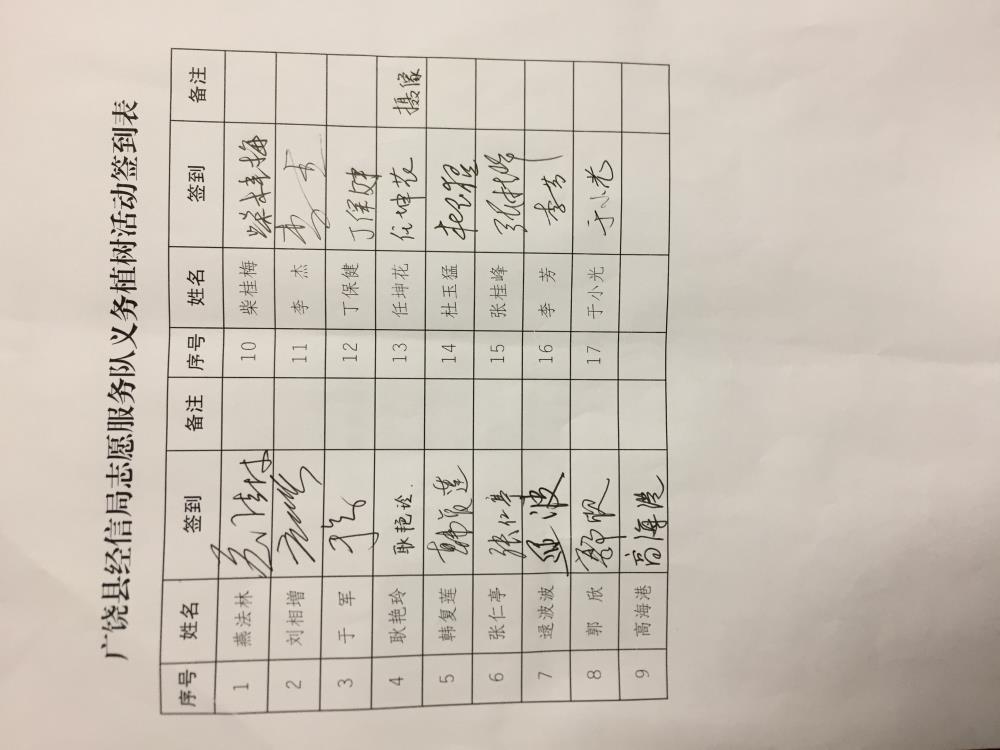 广饶县经信局志愿服务队义务植树活动签到表
序号 姓名 签到 备注 序号 姓名 签到 备注
1 燕法林 10 柴桂梅 柴桂梅
2 刘相增 11 李 杰 李杰
3 于 军 于军 12 丁保健 丁保健
4 耿艳玲 耿艳玲 13 任坤花 任坤花 摄像
5 韩复莲 韩复莲 14 杜玉猛
6 张仁亭 张仁亭 15 张桂峰 张桂峰
7 逯波波 16 李 芳 李芳
8 郭 欣 郭欣 17 于小光 于小光
9 高海港 高海港